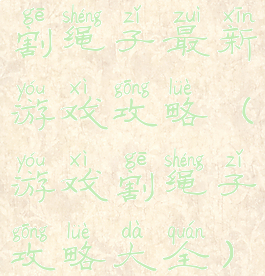 gē shéng zǐ zuì xīn
割绳子最新
yóu xì gōng lüè
游戏攻略（
yóu xì gē shéng zǐ
游戏割绳子
gōng lüè dà quán
攻略大全）